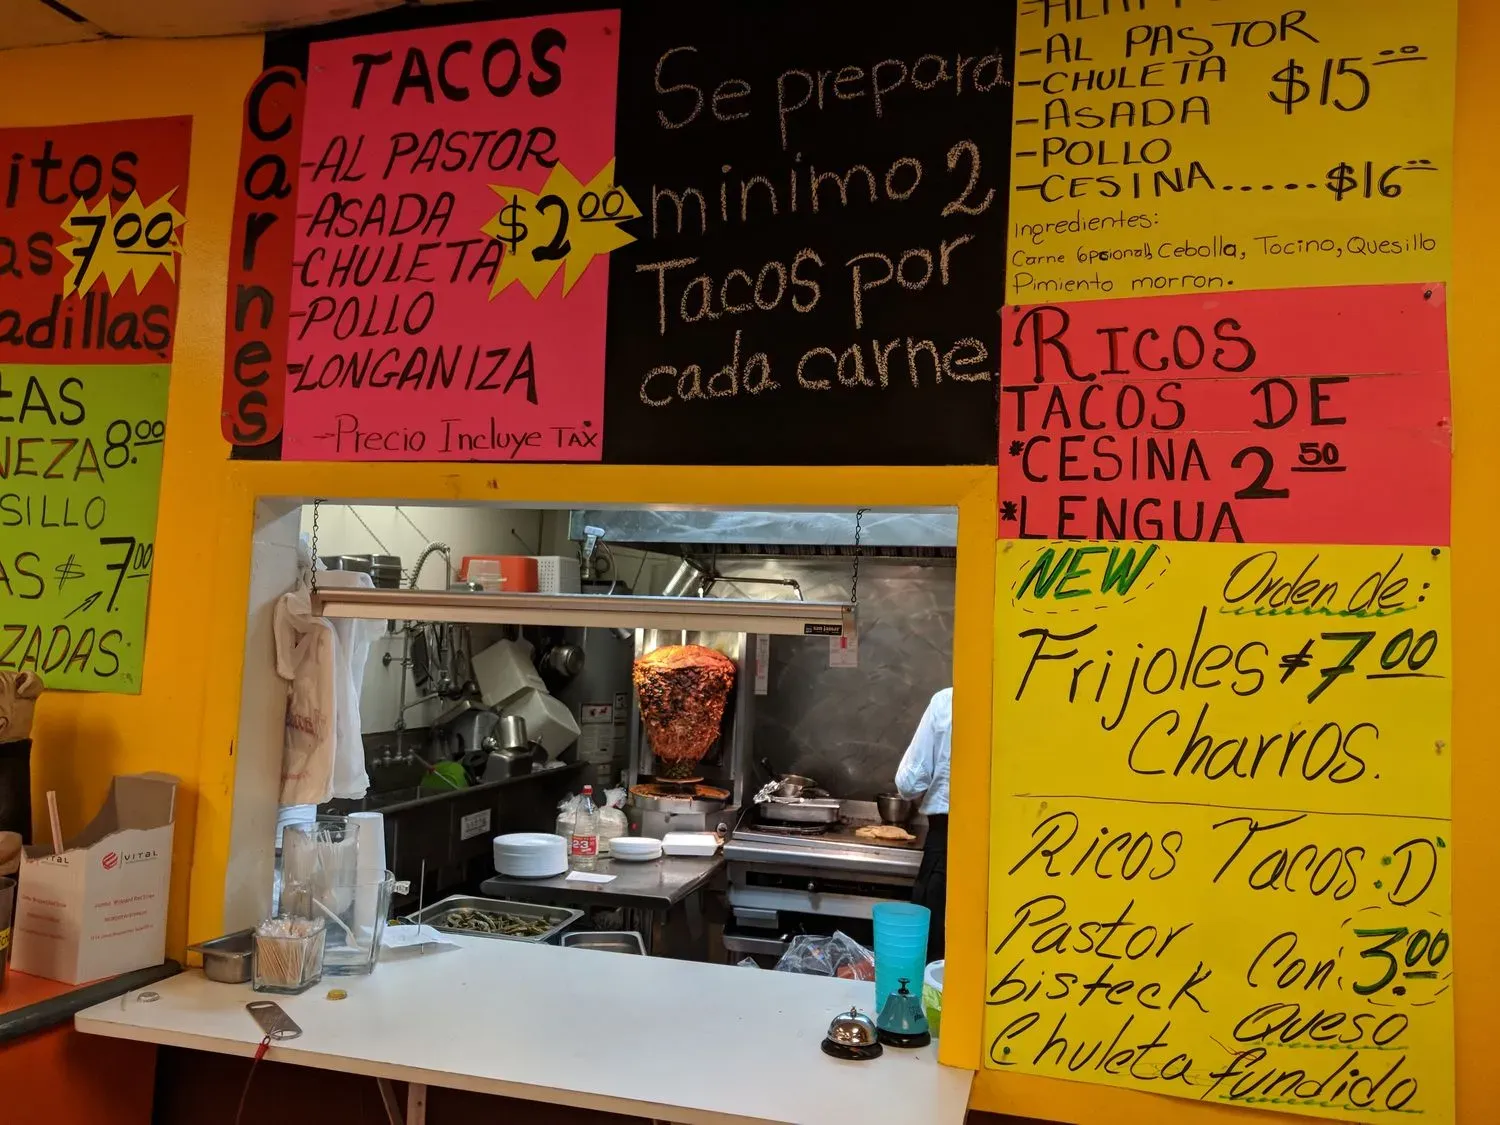 itos
as 7.00
adillas
8.00
SILLO
7.00
ZADAS
Carnes
TACOS
-AL PASTOR
-ASADA
$2.00
-CHULETA
-POLLO
-LONGANIZA
-Precio Incluye TAX
Se prepara
minimo 2
Tacos por
cada carne
-AL PASTOR
-CHULETA
$15.00
-ASADA
-POLLO
-CESINA.....$16.00
Ingredientes:
Carne (opcional), Cebolla, Tocino, Quesillo
Pimiento morron.
RICOS
TACOS DE
*CESINA 2.50
*LENGUA
NEW Orden de:
Frijoles $7.00
Charros.
Ricos Tacos: D'
Pastor Con: 3.00
bisteck Queso
Chuleta fundido
VITAL